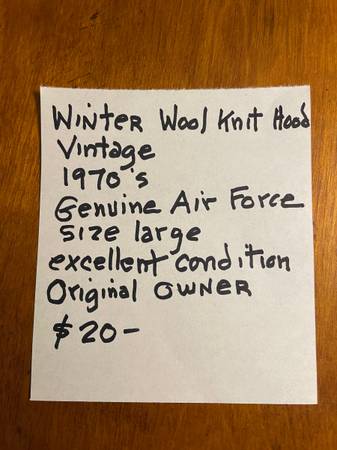 Winter Wool Knit Hood
Vintage
1970's
Genuine Air Force
size large
excellent condition
Original OWNER
$20-